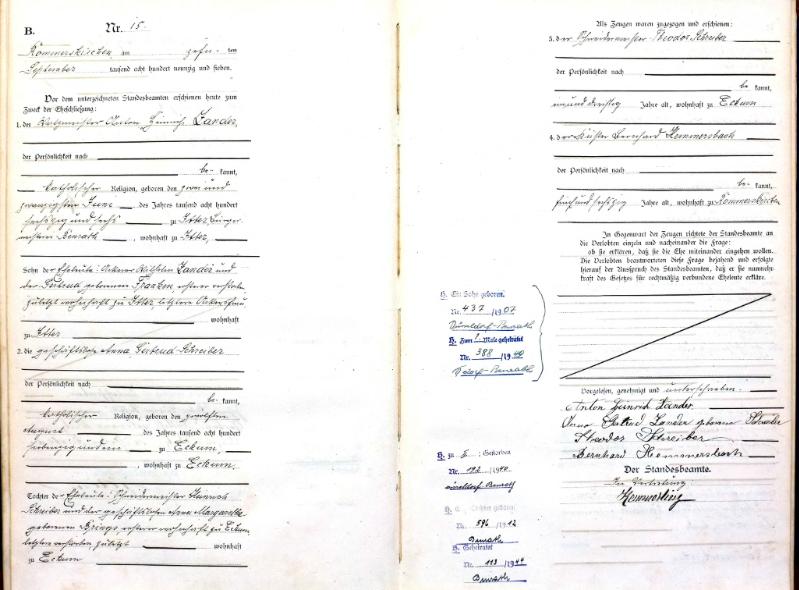 B.
Nr. 15.
Rommerskirchen, am zehn ten
September tausend acht hundert neunzig und sieben.
Vor dem unterzeichneten Standesbeamten erschienen heute zum
Zweck der Eheschließung:
1. der Anton Heinrich Zander,
der Persönlichkeit nach
be kannt,
katholischer Religion, geboren den zwei und
zwanzigsten Juni des Jahres tausend acht hundert
sechszig und sechs zu Itter, Bürger-
meisterei Benrath, wohnhaft zu Itter,
Sohn der Eheleute: Ackerer Wilhelm Zander und
der Gertrud geborenen Franken,
zuletzt wohnhaft zu Itter, letztere
wohnhaft
zu Itter
2. die geschäftslose Anna Gertrud Schreiber
der Persönlichkeit nach
be kannt,
katholischer Religion, geboren den zwölften
August des Jahres tausend acht hundert
siebenzig zu Eckum,
, wohnhaft zu Eckum,
Tochter der Eheleute: Schneidermeister Heinrich
Schreiber und der geschäftslosen Anna Margaretha
geborenen Brings, ersterer wohnhaft zu Eckum,
letztere verstorben, zuletzt wohnhaft
zu Eckum
Als Zeugen waren zugezogen und erschienen:
3. der Schneidermeister Theodor Schreiber
der Persönlichkeit nach
be kannt,
Jahre alt, wohnhaft zu Eckum
4. der Küster Bernhard Hemmersbach
der Persönlichkeit nach
be kannt,
fünf und sechszig Jahre alt, wohnhaft zu Rommerskirchen
In Gegenwart der Zeugen richtete der Standesbeamte an
die Verlobten einzeln und nacheinander die Frage:
ob sie erklären, daß sie die Ehe miteinander eingehen wollen.
Die Verlobten beantworteten diese Frage bejahend und erfolgte
hierauf der Ausspruch des Standesbeamten, daß er sie nunmehr
kraft des Gesetzes für rechtmäßig verbundene Eheleute erkläre.
Vorgelesen, genehmigt und unterschrieben.
Anton Heinrich Zander
Anna Gertrud Zander geborene Schreiber
Theodor Schreiber
Bernhard Hemmersbach
Der Standesbeamte.
In Vertretung
Hemmerling
H. Ein Sohn geboren.
Nr. 437 /1907
Düsseldorf-Benrath
H. Zum Male geheiratet
Nr. 388 /1940
Benrath
H. zu : Gestorben
Nr. 192 /1940
Düsseldorf Benrath
Tochter geboren
Nr. 596 /1912
Benrath
H. Geheiratet
Nr. 113 /1944
Benrath